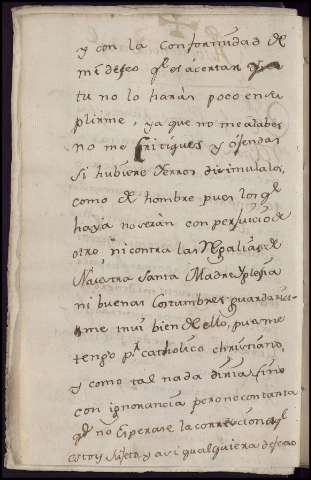 y con la conformidad de
mi deseo q.e es acertar
tu no lo harás poco en su
plirme, ya que no me alabes
no me Critiques y ofendas
si hubiere Yerros disimulalos,
como de hombre pues los q.e
haya no serán con perjuicio de
otro, ni contra las Regalias de
Nuestra Santa Madre Yglesia
ni buenas Costumbres guardaré
me mui bien de ello, pues me
tengo p.r catholico christiano,
y como tal nada diria sino
con ignorancia pero no con tanta
q.e no Esperase la correccion a q.e
estoy sujeto y asi qualquiera deseo